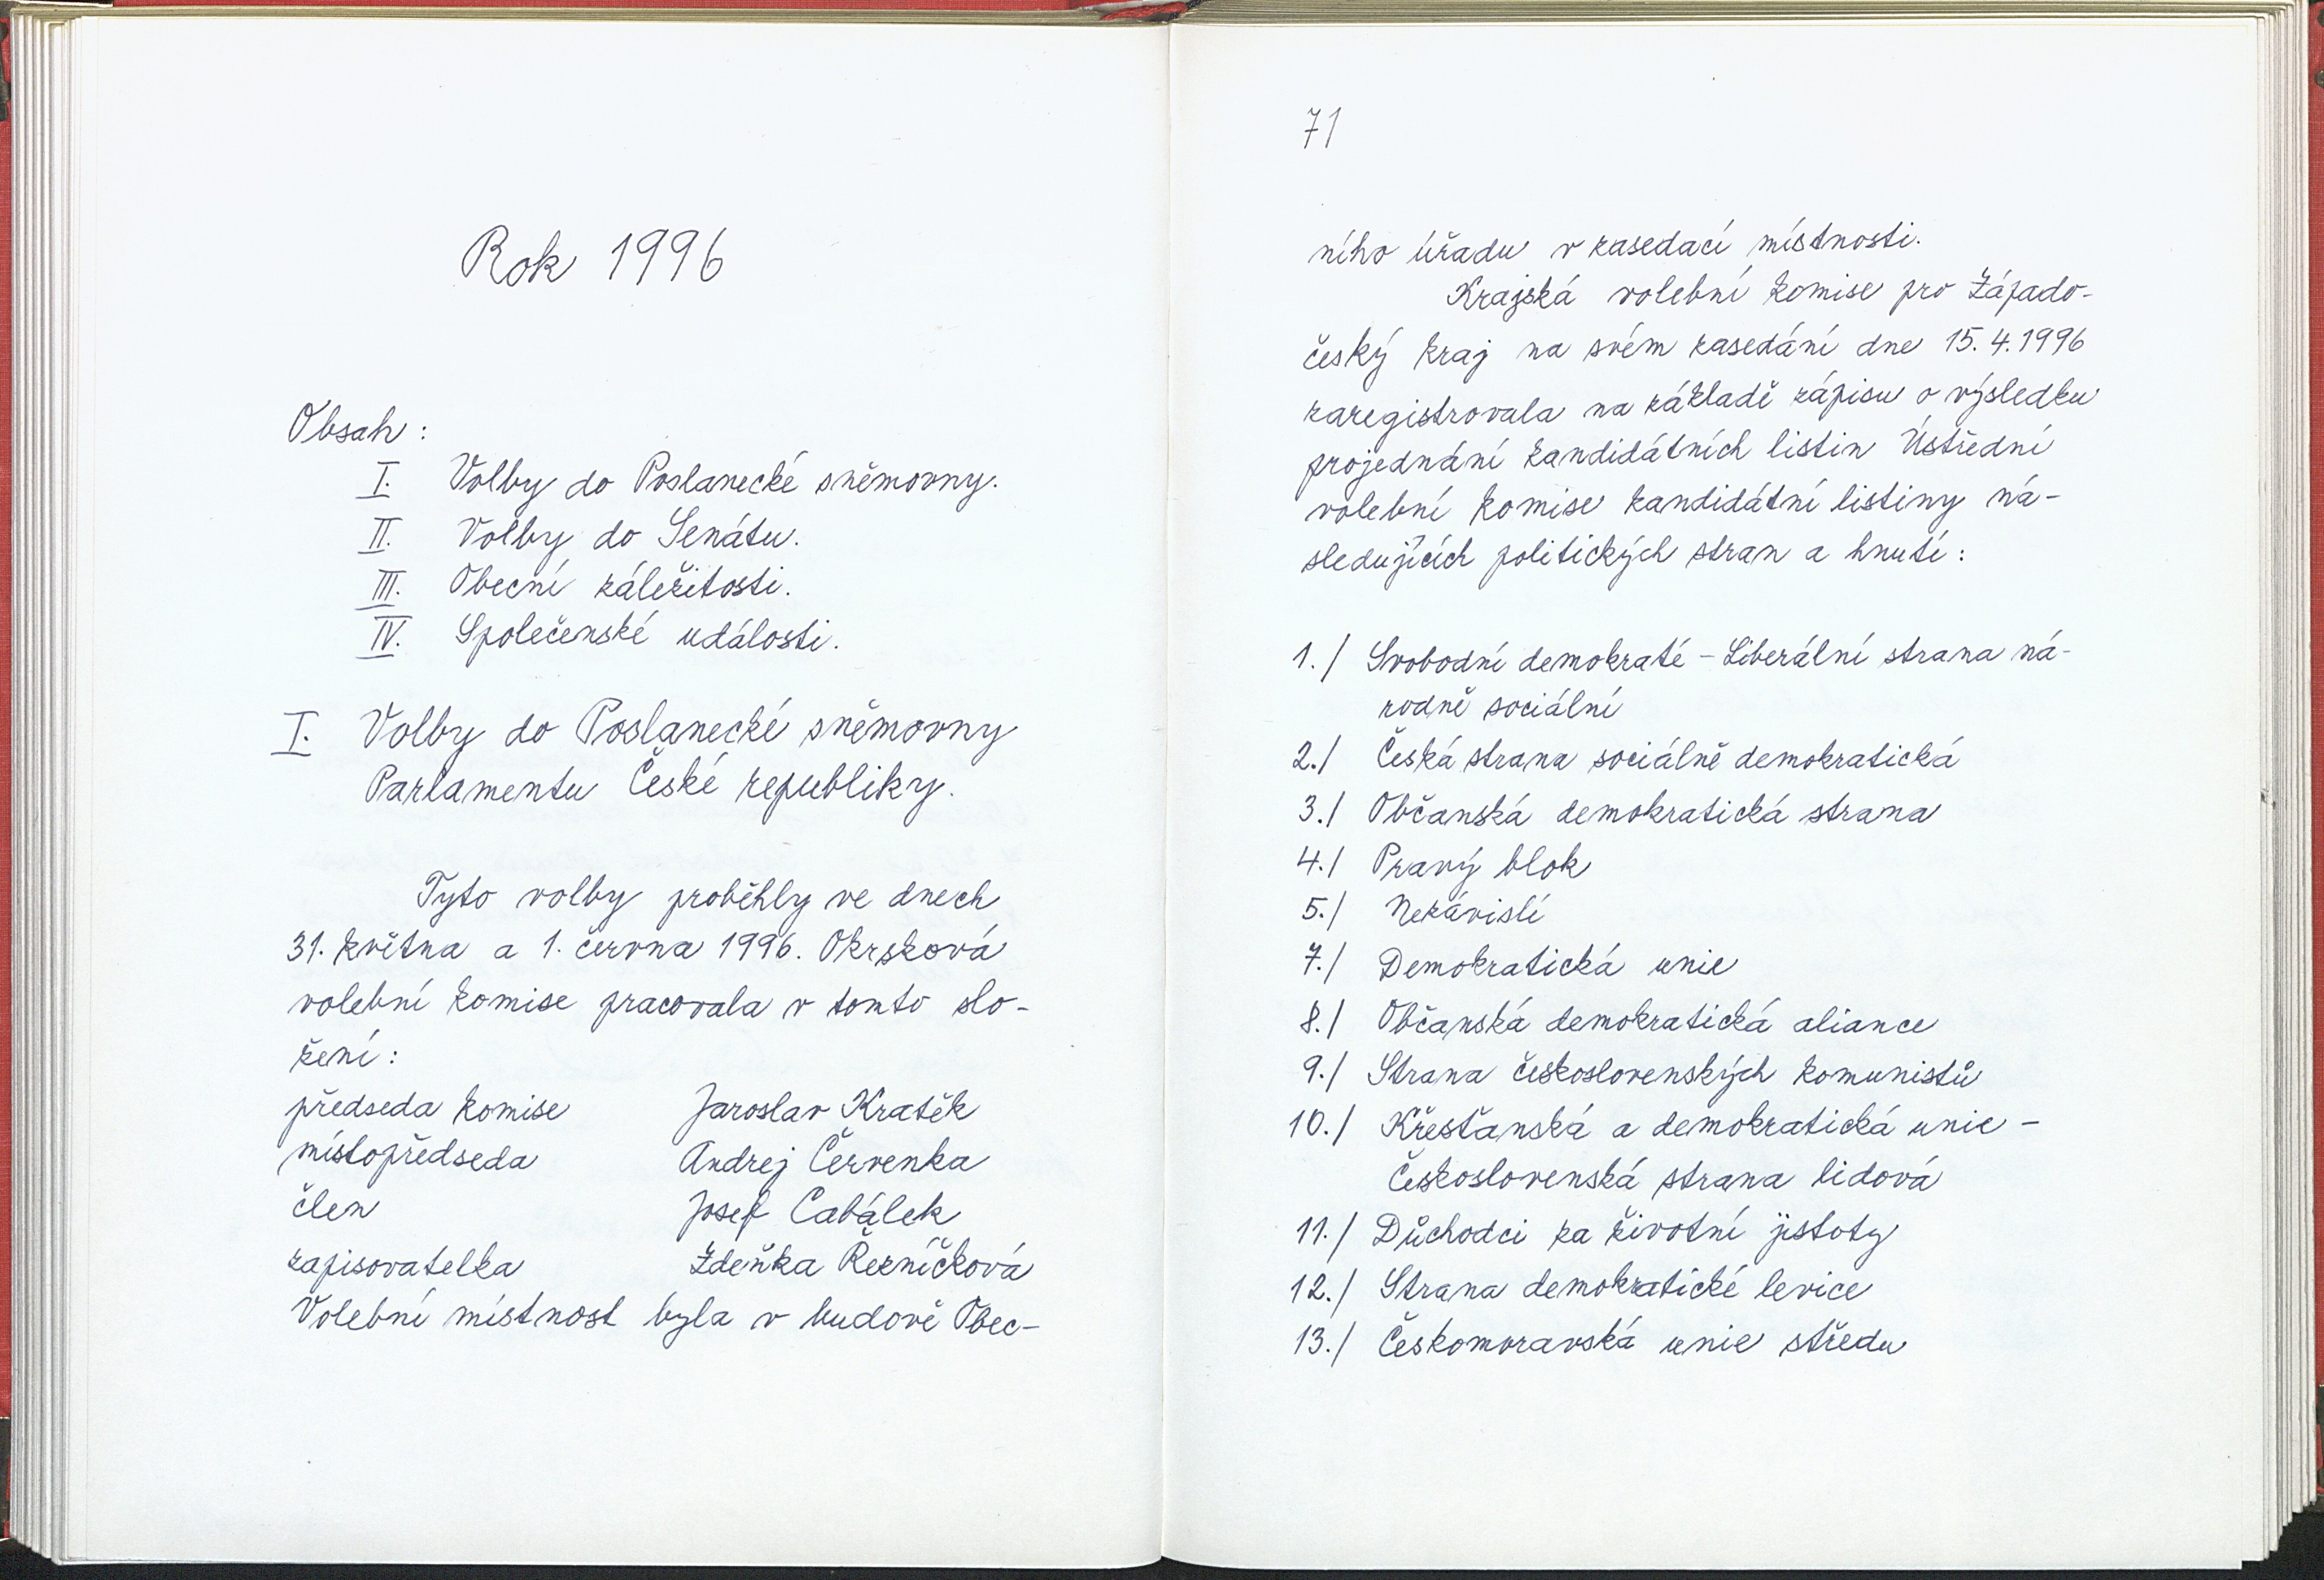 Rok 1996
Obsah:
I. Volby do Poslanecké sněmovny.
II. Volby do Senátu.
III. Obecní záležitosti.
IV. Společenské události.
I. Volby do Poslanecké sněmovny
Parlamentu České republiky.
Tyto volby proběhly ve dnech
31. května a 1. června 1996. Okrsková
volební komise pracovala v tomto slo-
žení:
předseda komise Jaroslav Kratěk
místopředseda Andrej Červenka
člen Josef Cabálek
zapisovatelka Zdeňka Řezníčková
Volební místnost byla v budově Obec-
71
ního úřadu v zasedací místnosti.
Krajská volební komise pro Západo-
český kraj na svém zasedání dne 15.4.1996
zaregistrovala na základě zápisu o výsledku
projednání kandidátních listin Ústřední
volební komise kandidátní listiny ná-
sledujících politických stran a hnutí:
1./ Svobodní demokraté - Liberální strana ná-
rodně sociální
2./ Česká strana sociálně demokratická
3./ Občanská demokratická strana
4./ Pravý blok
5./ Nezávislí
7./ Demokratická unie
8./ Občanská demokratická aliance
9./ Strana československých komunistů
10./ Křesťanská a demokratická unie -
Československá strana lidová
11./ Důchodci za životní jistoty
12./ Strana demokratické levice
13./ Českomoravská unie středu